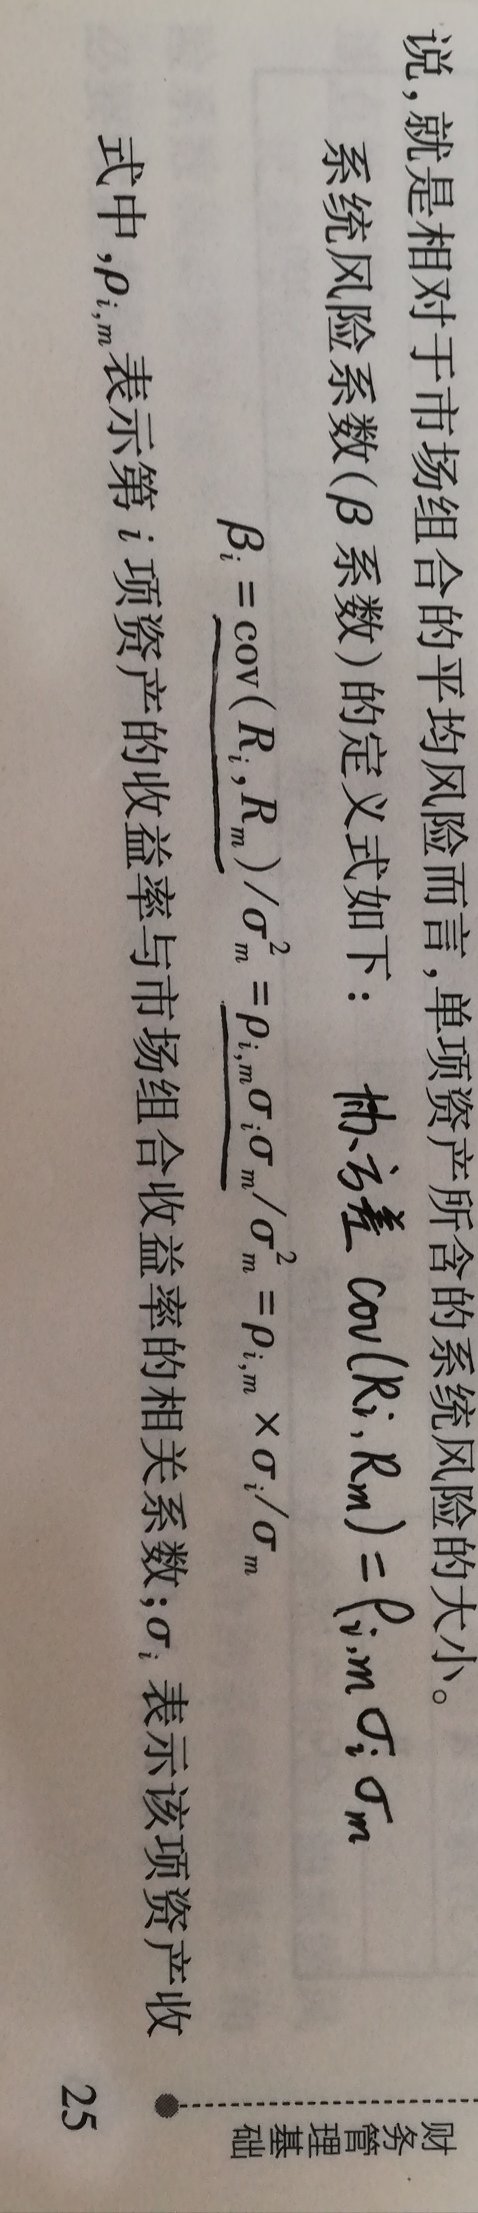 说,就是相对于市场组合的平均风险而言,单项资产所含的系统风险的大小。
系统风险系数(β 系数)的定义式如下: 协方差 cov(Ri,Rm)=ρi,mσiσm
βi=cov(Ri,Rm)/σ²m=ρi,mσiσm/σ²m=ρi,m×σi/σm
式中,ρi,m表示第 i 项资产的收益率与市场组合收益率的相关系数;σi 表示该项资产收
财务管理基础
25